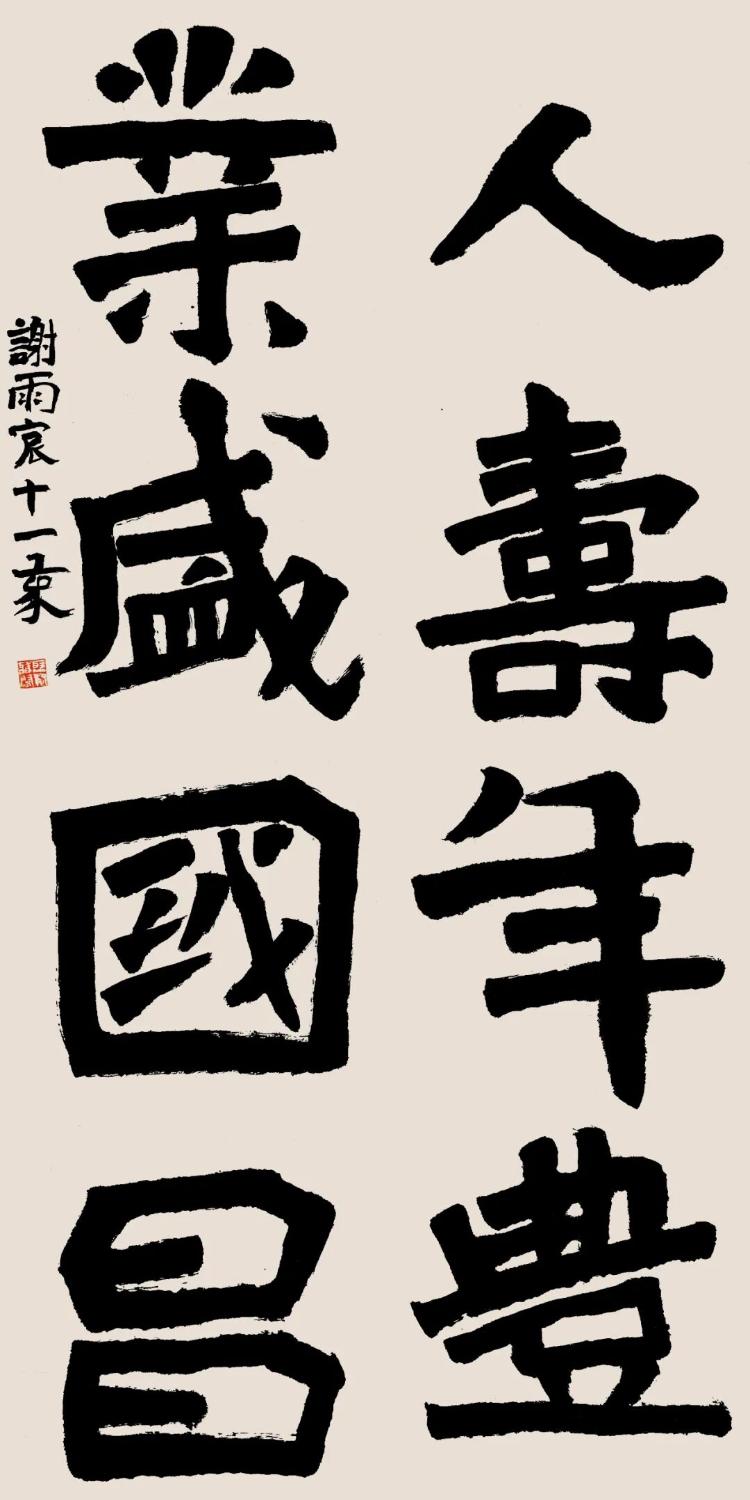 人壽年豐
業盛國昌
謝雨宸十一歲